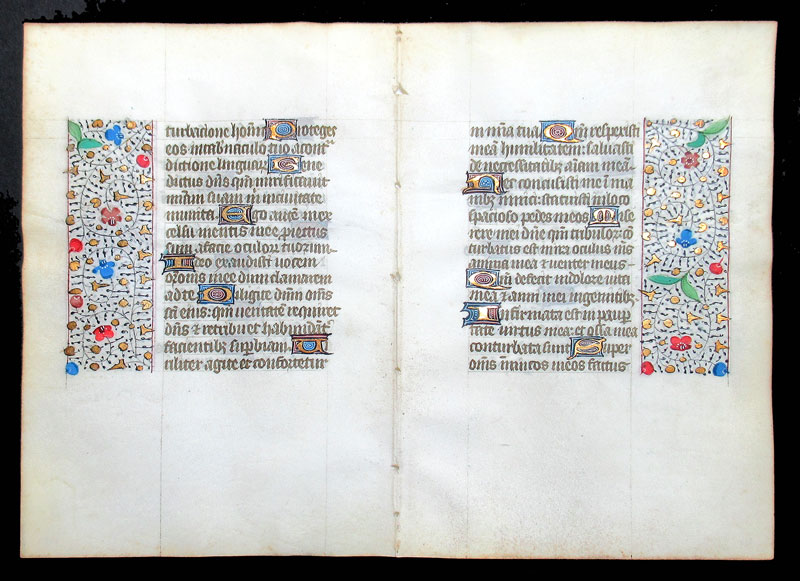 turbacione hom̄ Proteges
eos in tab̄naculo tuo a cont̄
dictione linguar̄ Bene
dictus dn̄s qm̄ mirificavit
miam̄ suam in civitate
munita Ego autē in ex
cessu mentis mee piectus
sum a facie oculor̄ tuorum
Ideo exaudisti vocem
oronis mee dum clamarem
ad te Diligite dnm̄ om̄s
sc̄i eius: qm̄ veritatē requiret
dn̄s & retribuet habundāt̄
facientibz superbiam Vi
riliter agite et confortetur
in mīa tua Qm̄ respexisti
meā humilitatem: salvasti
de necessitatibz aīam meā
Nec conclusisti me ī ma
nibz inimici: statuisti in loco
spacioso pedes meos Mise
rere mei dn̄e qm̄ tribulor cō
turbatus est in ira oculus m̄s
anima mea & venter meus
Qm̄ defecit in dolore vita
mea & anni mei in gemitibz
Infirmata est in paup̄
tate virtus mea: et ossa mea
conturbata sunt Super
om̄s inim̄cos meos factus